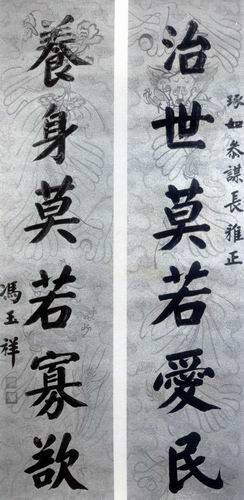 琢如參謀長雅正
治世莫若愛民
養身莫若寡欲
馮玉祥